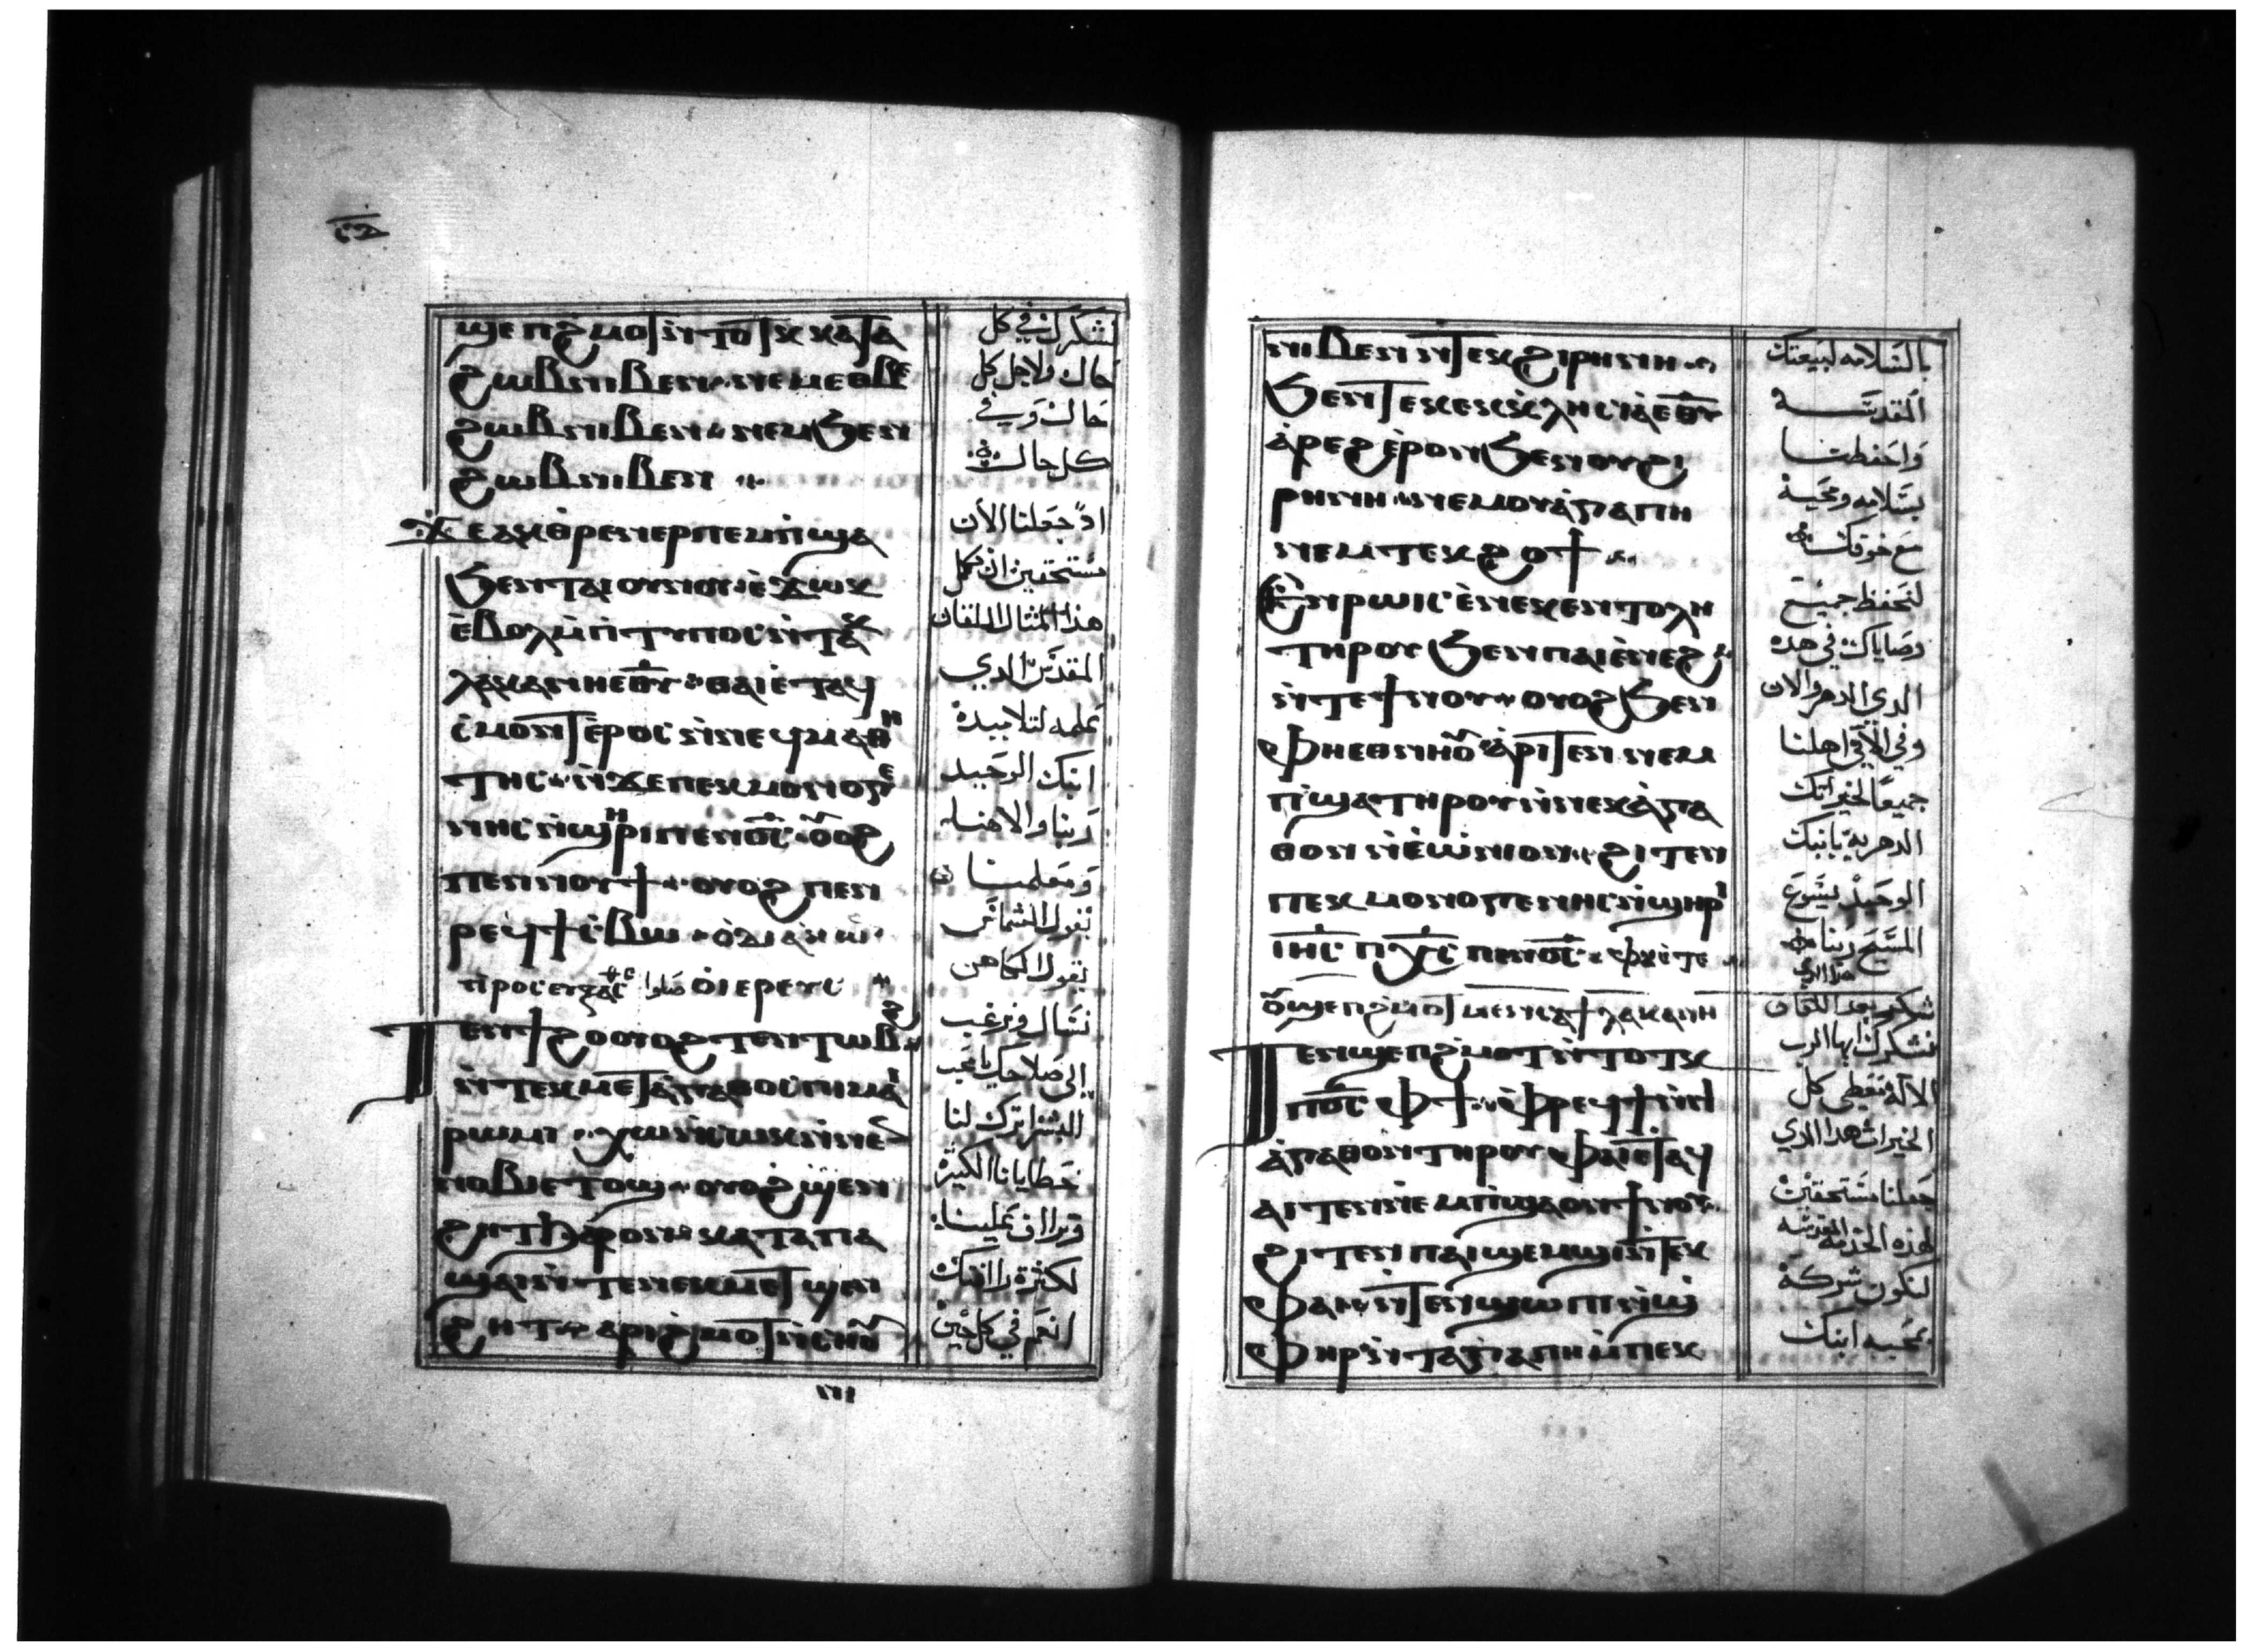 ϣⲉⲡϩ̀ⲙⲟϯⲛ̀ⲧⲟϯⲕ ⲕⲁⲧⲁ
ϩⲱⲃⲛⲓⲃⲉⲛ ⲛⲉⲙⲉⲑⲃⲉ
ϩⲱⲃⲛⲓⲃⲉⲛ ⲛⲉⲙϧⲉⲛ
ϩⲱⲃⲛⲓⲃⲉⲛ
ϫⲉⲁⲕⲑⲣⲉⲛⲉⲣⲡⲉⲙⲡ̀ϣⲁ
ϧⲉⲛⲧⲁⲓⲟⲩⲛⲟⲩ ⲉ̀ϫⲱⲕ
ⲉ̀ⲃⲟⲗⲙ̀ⲡⲓⲧⲩⲡⲟⲥⲛ̀ⲧⲁ
ⲗⲁⲕⲁⲛⲏⲉⲑⲩ ⲑⲁⲓⲉⲧⲁϥ
ⲥ̀ⲙⲟⲛϯⲉ̀ⲣⲟⲥ ⲛ̀ⲛⲉϥⲙⲁⲑⲏ
ⲧⲏⲥ ⲛ̀ϫⲉⲡⲉⲕⲙⲟⲛⲟⲅⲉ
ⲛⲏⲥⲛ̀ϣⲏⲣⲓ ⲡⲉⲛⲟ̅ⲥ̅ ⲟⲩⲟϩ
ⲡⲉⲛⲛⲟⲩϯ ⲟⲩⲟϩ ⲡⲉⲛ
ⲣⲉϥϯⲥ̀ⲃⲱ ⲟ̀ⲇⲓⲁⲕⲱ
ⲡⲣⲟⲥⲉⲩⲝⲁⲥ صلوا ⲟ̀ⲓⲉⲣⲉⲩⲥ
ⲧⲉⲛϯϩⲟ ⲟⲩⲟϩ ⲧⲉⲛⲧⲱⲃϩ
ⲛ̀ⲧⲉⲕⲙⲉⲧⲁ̀ⲅⲁⲑⲟⲥ ⲡⲓⲙⲁⲓ
ⲣⲱⲙⲓ ⲭⲱⲛⲏⲓⲱⲕⲛ̀ⲛⲉⲛ
ⲛⲟⲃⲓ ⲉⲧⲟϣ ⲟⲩⲟϩ ϣⲉⲛ
ϩⲏⲧ ϧⲁⲣⲟⲛ ⲕⲁⲧⲁ ⲡⲁ
ϣⲁⲓ ⲛ̀ⲧⲉⲛⲉⲕⲙⲉⲧϣⲉⲛ
ϩⲏⲧ ⲁⲣⲓϩ̀ⲙⲟⲧ ⲛ̀ⲥⲏⲟⲩ
نشكرك في كل
حال ولاجل كل
حال وفي
كل حال
اذ جعلتنا الان
مستحقين ان نكمل
هذا المثال اللقان
المقدس الدي
علمه لتلاميده
ابنك الوحيد
ربنا والاهنا
ومعلمنا
يقول الشماس
يقول الكاهن
نسال ونرغب
الى صلاحك يا محب
البشر اترك لنا
خطايانا الكتيرة
وتراااف علينا
لكثرة راافتك
انعم في كل حين
ⲛⲓⲃⲉⲛ ⲛ̀ⲧⲉⲕϩⲓⲣⲏⲛⲏ
ϧⲉⲛⲧⲉⲕⲉⲕⲕⲗⲏⲥⲓⲁ ⲉⲑⲩ
ⲁ̀ⲣⲉϩ ⲉ̀ⲣⲟⲛ ϧⲉⲛⲟⲩϩⲓ
ⲣⲏⲛⲏ ⲛⲉⲙⲟⲩⲁ̀ⲅⲁⲡⲏ
ⲛⲉⲙⲧⲉⲕϩⲟϯ
ⲉ̀ⲛⲣⲱⲓⲥ ⲉ̀ⲛⲉⲕⲉⲛⲧⲟⲗⲏ
ⲧⲏⲣⲟⲩ ϧⲉⲛⲡⲁⲓⲉ̀ⲛⲉϩ
ⲛ̀ⲧⲉϯⲛⲟⲩ ⲟⲩⲟϩ ϧⲉⲛ
ⲫⲏⲉⲑⲛⲏⲟⲩ ⲁ̀ⲣⲓⲧⲉⲛ ⲛⲉⲙ
ⲡ̀ϣⲁ ⲧⲏⲣⲟⲩ ⲛ̀ⲛⲉⲕⲁ̀ⲅⲁ
ⲑⲟⲛ ⲛ̀ⲉ̀ⲱ̀ⲛⲓⲟⲛ ϩⲓⲧⲉⲛ
ⲡⲉⲕⲙⲟⲛⲟⲅⲉⲛⲏⲥ ⲛ̀ϣⲏⲣⲓ
ⲓⲏ̅ⲥ̅ ⲡⲭ̅ⲥ̅ ⲡⲉⲛⲟ̅ⲥ̅ ⲫⲁⲓⲉⲧⲉ
ⲟⲩϣⲉⲡϩ̀ⲙⲟⲧ ⲙⲉⲛⲉⲛⲥⲁϯⲗⲁⲕⲁⲛⲏ
ⲧⲉⲛϣⲉⲡϩ̀ⲙⲟⲧ ⲛ̀ⲧⲟⲧⲕ
ⲡⲟ̅ⲥ̅ ⲫϯ ⲫ̀ⲣⲉϥϯ ⲛ̀ⲛⲓ
ⲁ̀ⲅⲁⲑⲟⲛ ⲧⲏⲣⲟⲩ ⲫⲁⲓⲉⲧⲁϥ
ⲁⲓⲧⲉⲛ ⲛⲉⲙⲡ̀ϣⲁ ⲟⲛ ϯⲛⲟⲩ
ϩⲓⲧⲉⲛ ⲡⲁⲓϣⲉⲙϣⲓ ⲛ̀ⲧⲉⲕ
ⲫⲁⲓ ⲛ̀ⲧⲉⲛϣⲱⲡⲓ ⲛ̀ϣ
ⲫⲏⲣ ⲛ̀ⲧⲁⲅⲁⲡⲏ ⲙ̀ⲡⲉⲕ
بالسلامه لبيعتك
المقدسة
واحفظنا
بسلامه ومحبة
مع خوفك
لنحفظ جميع
وصاياك في هده
الدي الدهر والان
وفي الآتي اهلنا
جميعا لخيراتك
الدهرية بابنك
الوحيد يسوع
المسيح ربنا
هدا الدي
شكر بعد اللقان
نشكرك ايها الرب
الاله معطي كل
الخيرات هدا الدي
جعلنا مستحقين
لهذه الخدمه المقدسه
لنكون شركة
محبه ابنك